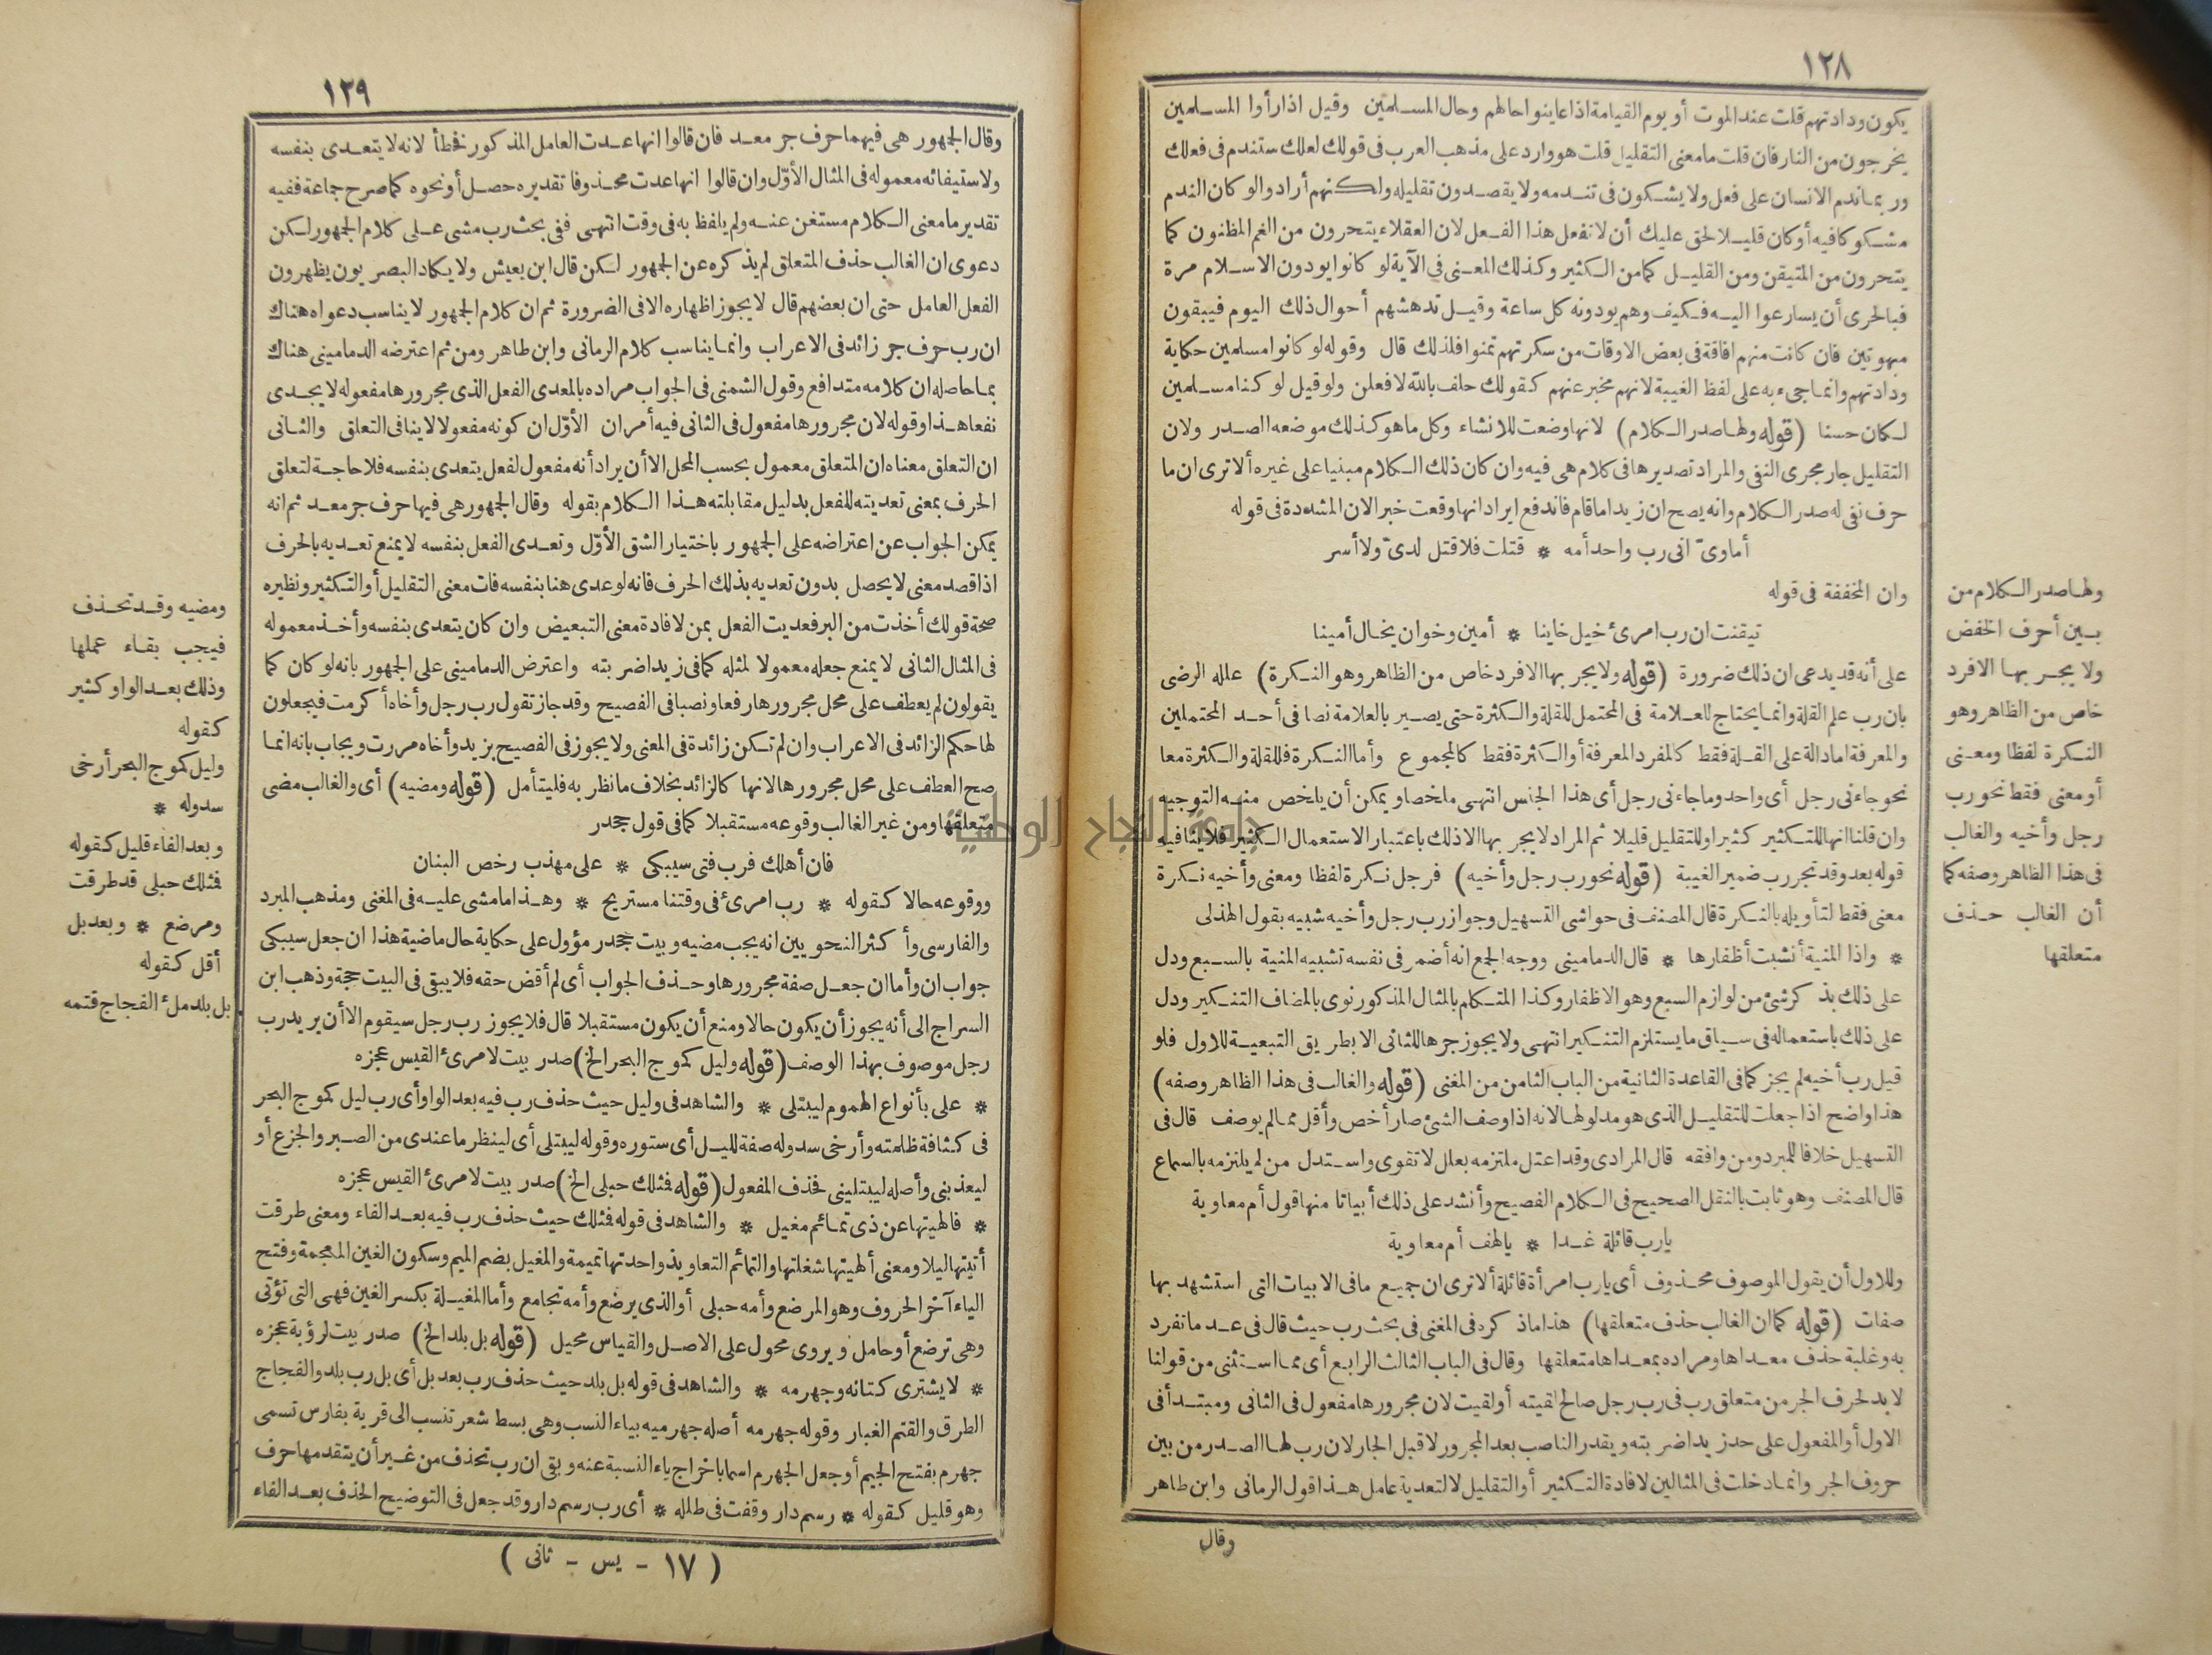 ١٢٨
يكون ودادتهم قلت عند الموت أو يوم القيامة اذا عاينوا حالهم وحال المسلمين وقيل اذا رأوا المسلمين
يخرجون من النار فان قلت ما معنى التقليل قلت هو وارد على مذهب العرب فى قولك لعلك ستندم فى فعلك
وربما ندم الانسان على فعل ولا يشكون فى تندمه ولا يقصدون تقليله ولكنهم أرادوا لو كان الندم
مشكوكا فيه أو كان قليلا لحق عليك أن لا تفعل هذا الفعل لان العقلاء يتحرون من الغم المظنون كما
يتحرون من المتيقن ومن القليل كما من الكثير وكذلك المعنى فى الآية لو كانوا يودون الاسلام مرة
فبالحرى أن يسارعوا اليه فكيف وهم يودونه كل ساعة وقيل تدهشهم أحوال ذلك اليوم فيبقون
مبهوتين فان كانت منهم افاقة فى بعض الاوقات من سكرتهم تمنوا فلذلك قال وقوله لو كانوا مسلمين حكاية
ودادتهم وانما جىء به على لفظ الغيبة لانهم مخبر عنهم كقولك حلف بالله لافعلن ولو قيل لو كنا مسلمين
لكان حسنا (قوله ولها صدر الكلام) لانها وضعت للانشاء وكل ما هو كذلك موضعه الصدر ولان
التقليل جار مجرى النفى والمراد تصديرها فى كلام هى فيه وان كان ذلك الكلام مبنيا على غيره ألا ترى ان ما
حرف نفى له صدر الكلام وانه يصح ان زيدا ما قام فاندفع ايراد انها وقعت خبر الان المشددة فى قوله
أماوىّ انى رب واحد أمه * قتلت فلا قتل لدىّ ولا أسر
وان المخففة فى قوله
تيقنت ان رب امرئ خيل خاينا * أمين وخوان يخال أمينا
على أنه قد يدعى ان ذلك ضرورة (قوله ولا يجر بها الا فرد خاص من الظاهر وهو النكرة) علله الرضى
بان رب علم القلة وانما يحتاج للعلامة فى المحتمل للقلة والكثرة حتى يصير بالعلامة نصا فى أحد المحتملين
والمعرفة اما دالة على القلة فقط كالمفرد المعرفة أو الكثرة فقط كالمجموع وأما النكرة فللقلة والكثرة معا
نحو جاءنى رجل أى واحد وما جاءنى رجل أى هذا الجنس انتهى ملخصا ويمكن أن يلخص منه التوجيه
وان قلنا انها للتكثير كثيرا وللتقليل قليلا ثم المراد لا يجر بها الا ذلك باعتبار الاستعمال الكثير فلا ينافيه
قوله بعد وقد تجر رب ضمير الغيبة (قوله نحو رب رجل وأخيه) فرجل نكرة لفظا ومعنى وأخيه نكرة
معنى فقط لتأويله بالنكرة قال المصنف فى حواشى التسهيل وجواز رب رجل وأخيه شبيه بقول الهذلى
* واذا المنية أنشبت أظفارها * قال الدمامينى ووجه الجمع انه أضمر فى نفسه تشبيه المنية بالسبع ودل
على ذلك بذكر شئ من لوازم السبع وهو الاظفار وكذا المتكلم بالمثال المذكور نوى بالمضاف التنكير ودل
على ذلك باستعماله فى سياق ما يستلزم التنكير انتهى ولا يجوز جرها للثانى الا بطريق التبعية للاول فلو
قيل رب أخيه لم يجز كما فى القاعدة الثانية من الباب الثامن من المغنى (قوله والغالب فى هذا الظاهر وصفه)
هذا واضح اذا جعلت للتقليل الذى هو مدلولها لانه اذا وصف الشئ صار أخص وأقل مما لم يوصف قال فى
التسهيل خلافا للمبرد ومن وافقه قال المرادى وقد اعتل ملتزمه بعلل لا تقوى واستدل من لم يلتزمه بالسماع
قال المصنف وهو ثابت بالنقل الصحيح فى الكلام الفصيح وأنشد على ذلك أبياتا منها قول أم معاوية
يارب قائلة غدا * يالهف أم معاوية
وللاول أن يقول الموصوف محذوف أى يارب امرأة قائلة ألا ترى ان جميع ما فى الابيات التى استشهد بها
صفات (قوله كما ان الغالب حذف متعلقها) هذا ما ذكره فى المغنى فى بحث رب حيث قال فى عد ما تفرد
به وغلبة حذف معداها ومراده بمعداها متعلقها وقال فى الباب الثالث الرابع أى مما استثنى من قولنا
لا بد لحرف الجر من متعلق رب فى رب رجل صالح لقيته أو لقيت لان مجرورها مفعول فى الثانى ومبتدأ فى
الاول أو المفعول على حد زيدا ضربته ويقدر الناصب بعد المجرور لا قبل الجار لان رب لها الصدر من بين
حروف الجر وانما دخلت فى المثالين لافادة التكثير أو التقليل لا لتعدية عامل هذا قول الرمانى وابن طاهر
وقال
ولها صدر الكلام من
بين أحرف الخفض
ولا يجر بها الا فرد
خاص من الظاهر وهو
النكرة لفظا ومعنى
أو معنى فقط نحو رب
رجل وأخيه والغالب
فى هذا الظاهر وصفه كما
أن الغالب حذف
متعلقها
١٢٩
وقال الجمهور هى فيهما حرف جر معد فان قالوا انها عدت العامل المذكور فخطأ لانه لا يتعدى بنفسه
ولاستيفائه معموله فى المثال الأوّل وان قالوا انها عدت محذوفا تقديره حصل أو نحوه كما صرح جماعة ففيه
تقدير ما معنى الكلام مستغن عنه ولم يلفظ به فى وقت انتهى ففى بحث رب مشى على كلام الجمهور لكن
دعوى ان الغالب حذف المتعلق لم يذكره عن الجمهور لكن قال ابن يعيش ولا يكاد البصريون يظهرون
الفعل العامل حتى ان بعضهم قال لا يجوز اظهاره الا فى الضرورة ثم ان كلام الجمهور لا يناسب دعواه هناك
ان رب حرف جر زائد فى الاعراب وانما يناسب كلام الرمانى وابن طاهر ومن ثم اعترضه الدمامينى هناك
بما حاصله ان كلامه متدافع وقول الشمنى فى الجواب مراده بالمعدى الفعل الذى مجرورها مفعوله لا يجدى
نفعا هذا وقوله لان مجرورها مفعول فى الثانى فيه أمران الأوّل ان كونه مفعولا لا ينافى التعلق والثانى
ان التعلق معناه ان المتعلق معمول بحسب المحل الا أن يراد أنه مفعول لفعل يتعدى بنفسه فلا حاجة لتعلق
الحرف بمعنى تعديته للفعل بدليل مقابلته هذا الكلام بقوله وقال الجمهور هى فيها حرف جر معد ثم انه
يمكن الجواب عن اعتراضه على الجمهور باختيار الشق الأوّل وتعدى الفعل بنفسه لا يمنع تعديه بالحرف
اذا قصد معنى لا يحصل بدون تعديه بذلك الحرف فانه لو عدى هنا بنفسه فات معنى التقليل أو التكثير ونظيره
صحة قولك أخذت من البر فعديت الفعل بمن لافادة معنى التبعيض وان كان يتعدى بنفسه وأخذ معموله
فى المثال الثانى لا يمنع جعله معمولا لمثله كما فى زيدا ضربته واعترض الدمامينى على الجمهور بانه لو كان كما
يقولون لم يعطف على محل مجرورها رفعا ونصبا فى الفصيح وقد جاز تقول رب رجل وأخاه أكرمت فيجعلون
لها حكم الزائد فى الاعراب وان لم تكن زائدة فى المعنى ولا يجوز فى الفصيح بزيد وأخاه مررت ويجاب بانه انما
صح العطف على محل مجرورها لانها كالزائد بخلاف ما نظر به فليتأمل (قوله ومضيه) أى والغالب مضى
متعلقها ومن غير الغالب وقوعه مستقبلا كما فى قول جحدر
فان أهلك فرب فتى سيبكى * على مهذب رخص البنان
ووقوعه حالا كقوله * رب امرئ فى وقتنا مستريح * وهذا ما مشى عليه فى المغنى ومذهب المبرد
والفارسى وأكثر النحويين انه يجب مضيه وبيت جحدر مؤول على حكاية حال ماضية هذا ان جعل سيبكى
جواب ان وأما ان جعل صفة مجرورها وحذف الجواب أى لم أقض حقه فلا يبقى فى البيت حجة وذهب ابن
السراج الى أنه يجوز أن يكون حالا ومنع أن يكون مستقبلا قال فلا يجوز رب رجل سيقوم الا أن يريد رب
رجل موصوف بهذا الوصف (قوله وليل كموج البحر الخ) صدر بيت لامرئ القيس عجزه
* على بأنواع الهموم ليبتلى * والشاهد فى وليل حيث حذف رب فيه بعد الواو أى رب ليل كموج البحر
فى كثافة ظلمته وأرخى سدوله صفة لليل أى ستوره وقوله ليبتلى أى لينظر ما عندى من الصبر والجزع أو
ليعذبنى وأصله ليبتلينى فحذف المفعول (قوله فمثلك حبلى الخ) صدر بيت لامرئ القيس عجزه
* فالهيتها عن ذى تمائم مغيل * والشاهد فى قوله فمثلك حيث حذف رب فيه بعد الفاء ومعنى طرقت
أتيتها ليلا ومعنى ألهيتها شغلتها والتمائم التعاويذ واحدتها تميمة والمغيل بضم الميم وسكون الغين المعجمة وفتح
الياء آخر الحروف وهو المرضع وأمه حبلى أو الذى يرضع وأمه تجامع وأما المغيلة بكسر الغين فهى التى تؤتى
وهى ترضع أو حامل ويروى محول على الاصل والقياس محيل (قوله بل بلد الخ) صدر بيت لرؤبة عجزه
* لا يشترى كتانه وجهرمه * والشاهد فى قوله بل بلد حيث حذف رب بعد بل أى بل رب بلد والفجاج
الطرق والقتم الغبار وقوله جهرمه أصله جهرميه بياء النسب وهى بسط شعر تنسب الى قرية بفارس تسمى
جهرم بفتح الجيم أو جعل الجهرم اسما باخراج ياء النسبة عنه وبقى ان رب تحذف من غير أن يتقدمها حرف
وهو قليل كقوله * رسم دار وقفت فى طلله * أى رب رسم دار وقد جعل فى التوضيح الحذف بعد الفاء
(١٧ - يس - ثانى)
ومضيه وقد تحذف
فيجب بقاء عملها
وذلك بعد الواو كثير
كقوله
وليل كموج البحر أرخى
سدوله *
وبعد الفاء قليل كقوله
فمثلك حبلى قد طرقت
ومرضع * وبعد بل
أقل كقوله
بل بلد ملء الفجاج قتمه
جامعة النجاح الوطنية